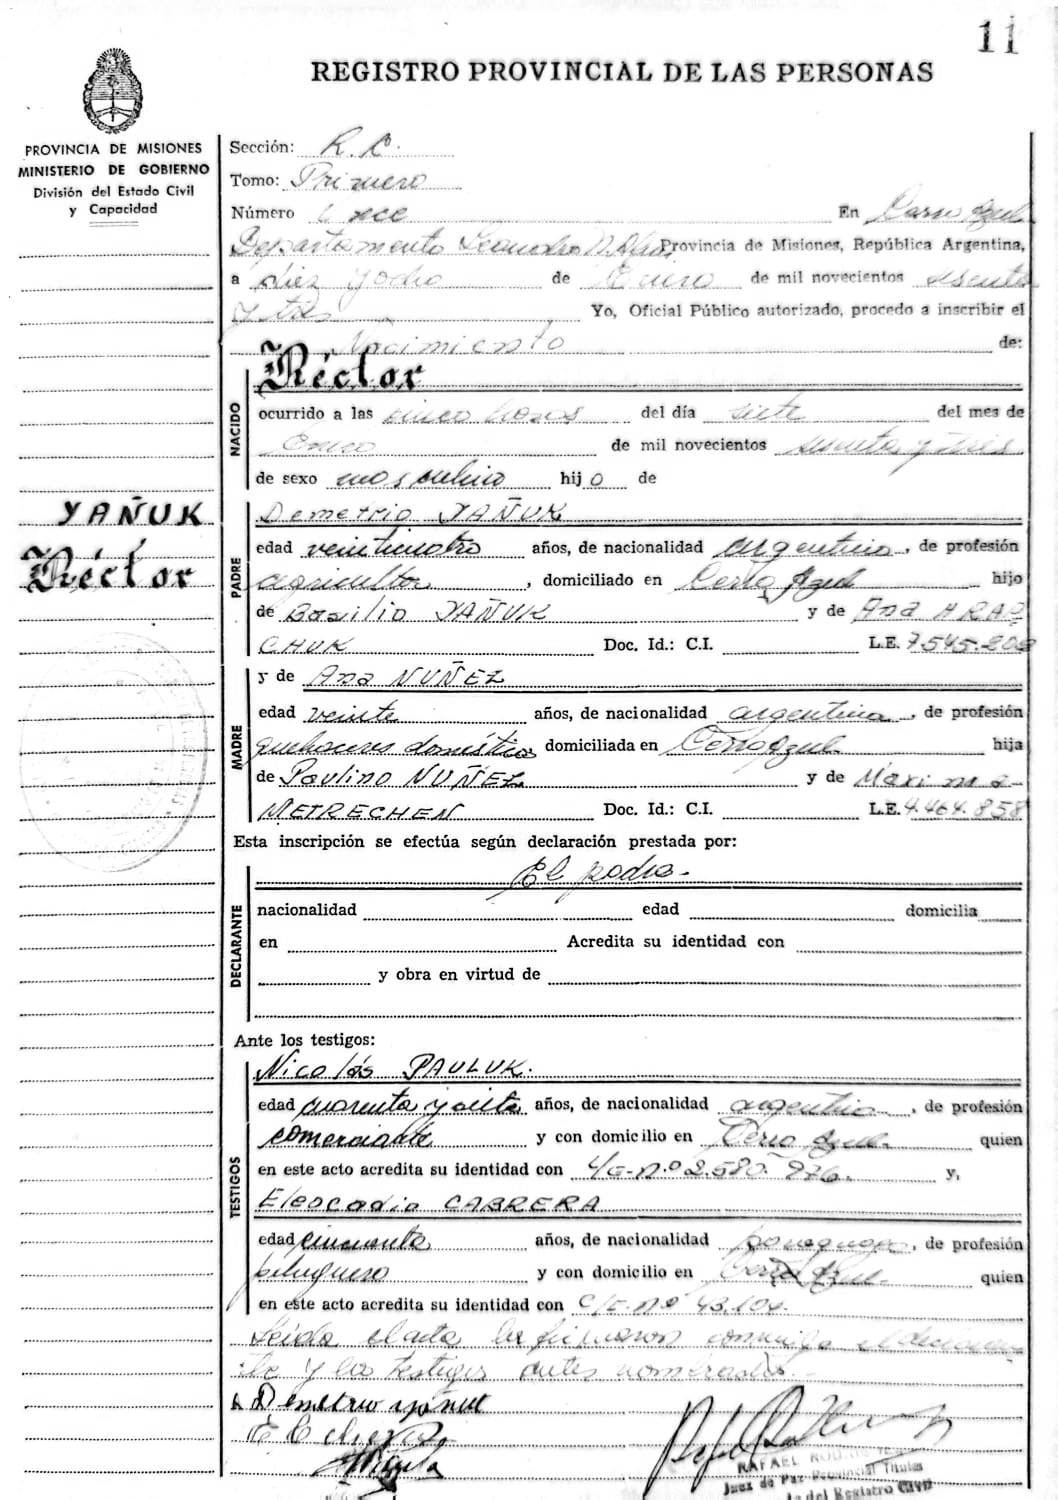 11
REGISTRO PROVINCIAL DE LAS PERSONAS
PROVINCIA DE MISIONES
MINISTERIO DE GOBIERNO
División del Estado Civil
y Capacidad
Sección: R. C.
Tomo: Primero
Número Once En Cerro Azul
Departamento Leandro N. Alem, Provincia de Misiones, República Argentina,
a diez y ocho de Enero de mil novecientos sesenta
y tres Yo, Oficial Público autorizado, procedo a inscribir el
Nacimiento de:
NACIDO
Héctor
ocurrido a las cinco horas del día siete del mes de
Enero de mil novecientos sesenta y tres
de sexo masculino hijo de
YAÑUK
Héctor
PADRE
Demetrio YAÑUK
edad veinticuatro años, de nacionalidad argentina, de profesión
agricultor, domiciliado en Cerro Azul hijo
de Basilio YAÑUK y de Ana HRAP
CHUK Doc. Id.: C.I. L.E. 7.545.202
MADRE
y de Ana NUÑEZ
edad veinte años, de nacionalidad argentina, de profesión
quehaceres domésticos domiciliada en Cerro Azul hija
de Paulino NUÑEZ y de Maxima
METRECHEN Doc. Id.: C.I. L.E. 4.464.858
Esta inscripción se efectúa según declaración prestada por:
DECLARANTE
El padre.-
nacionalidad edad domicilia
en Acredita su identidad con
y obra en virtud de
Ante los testigos:
TESTIGOS
Nicolás PAULUK.
edad cuarenta y siete años, de nacionalidad argentina, de profesión
comerciante y con domicilio en Cerro Azul. quien
en este acto acredita su identidad con nº 2.580.976. y,
Eleocadio CABRERA
edad cincuenta años, de nacionalidad paraguaya, de profesión
peluquero y con domicilio en Cerro Azul.- quien
en este acto acredita su identidad con C/I-nº 43.104.
Leída el acta la firmaron conmigo el declaran
te y los testigos antes nombrados.-
Demetrio yañuk
RAFAEL
Juez de Paz Provincial Titular
del Registro Civil